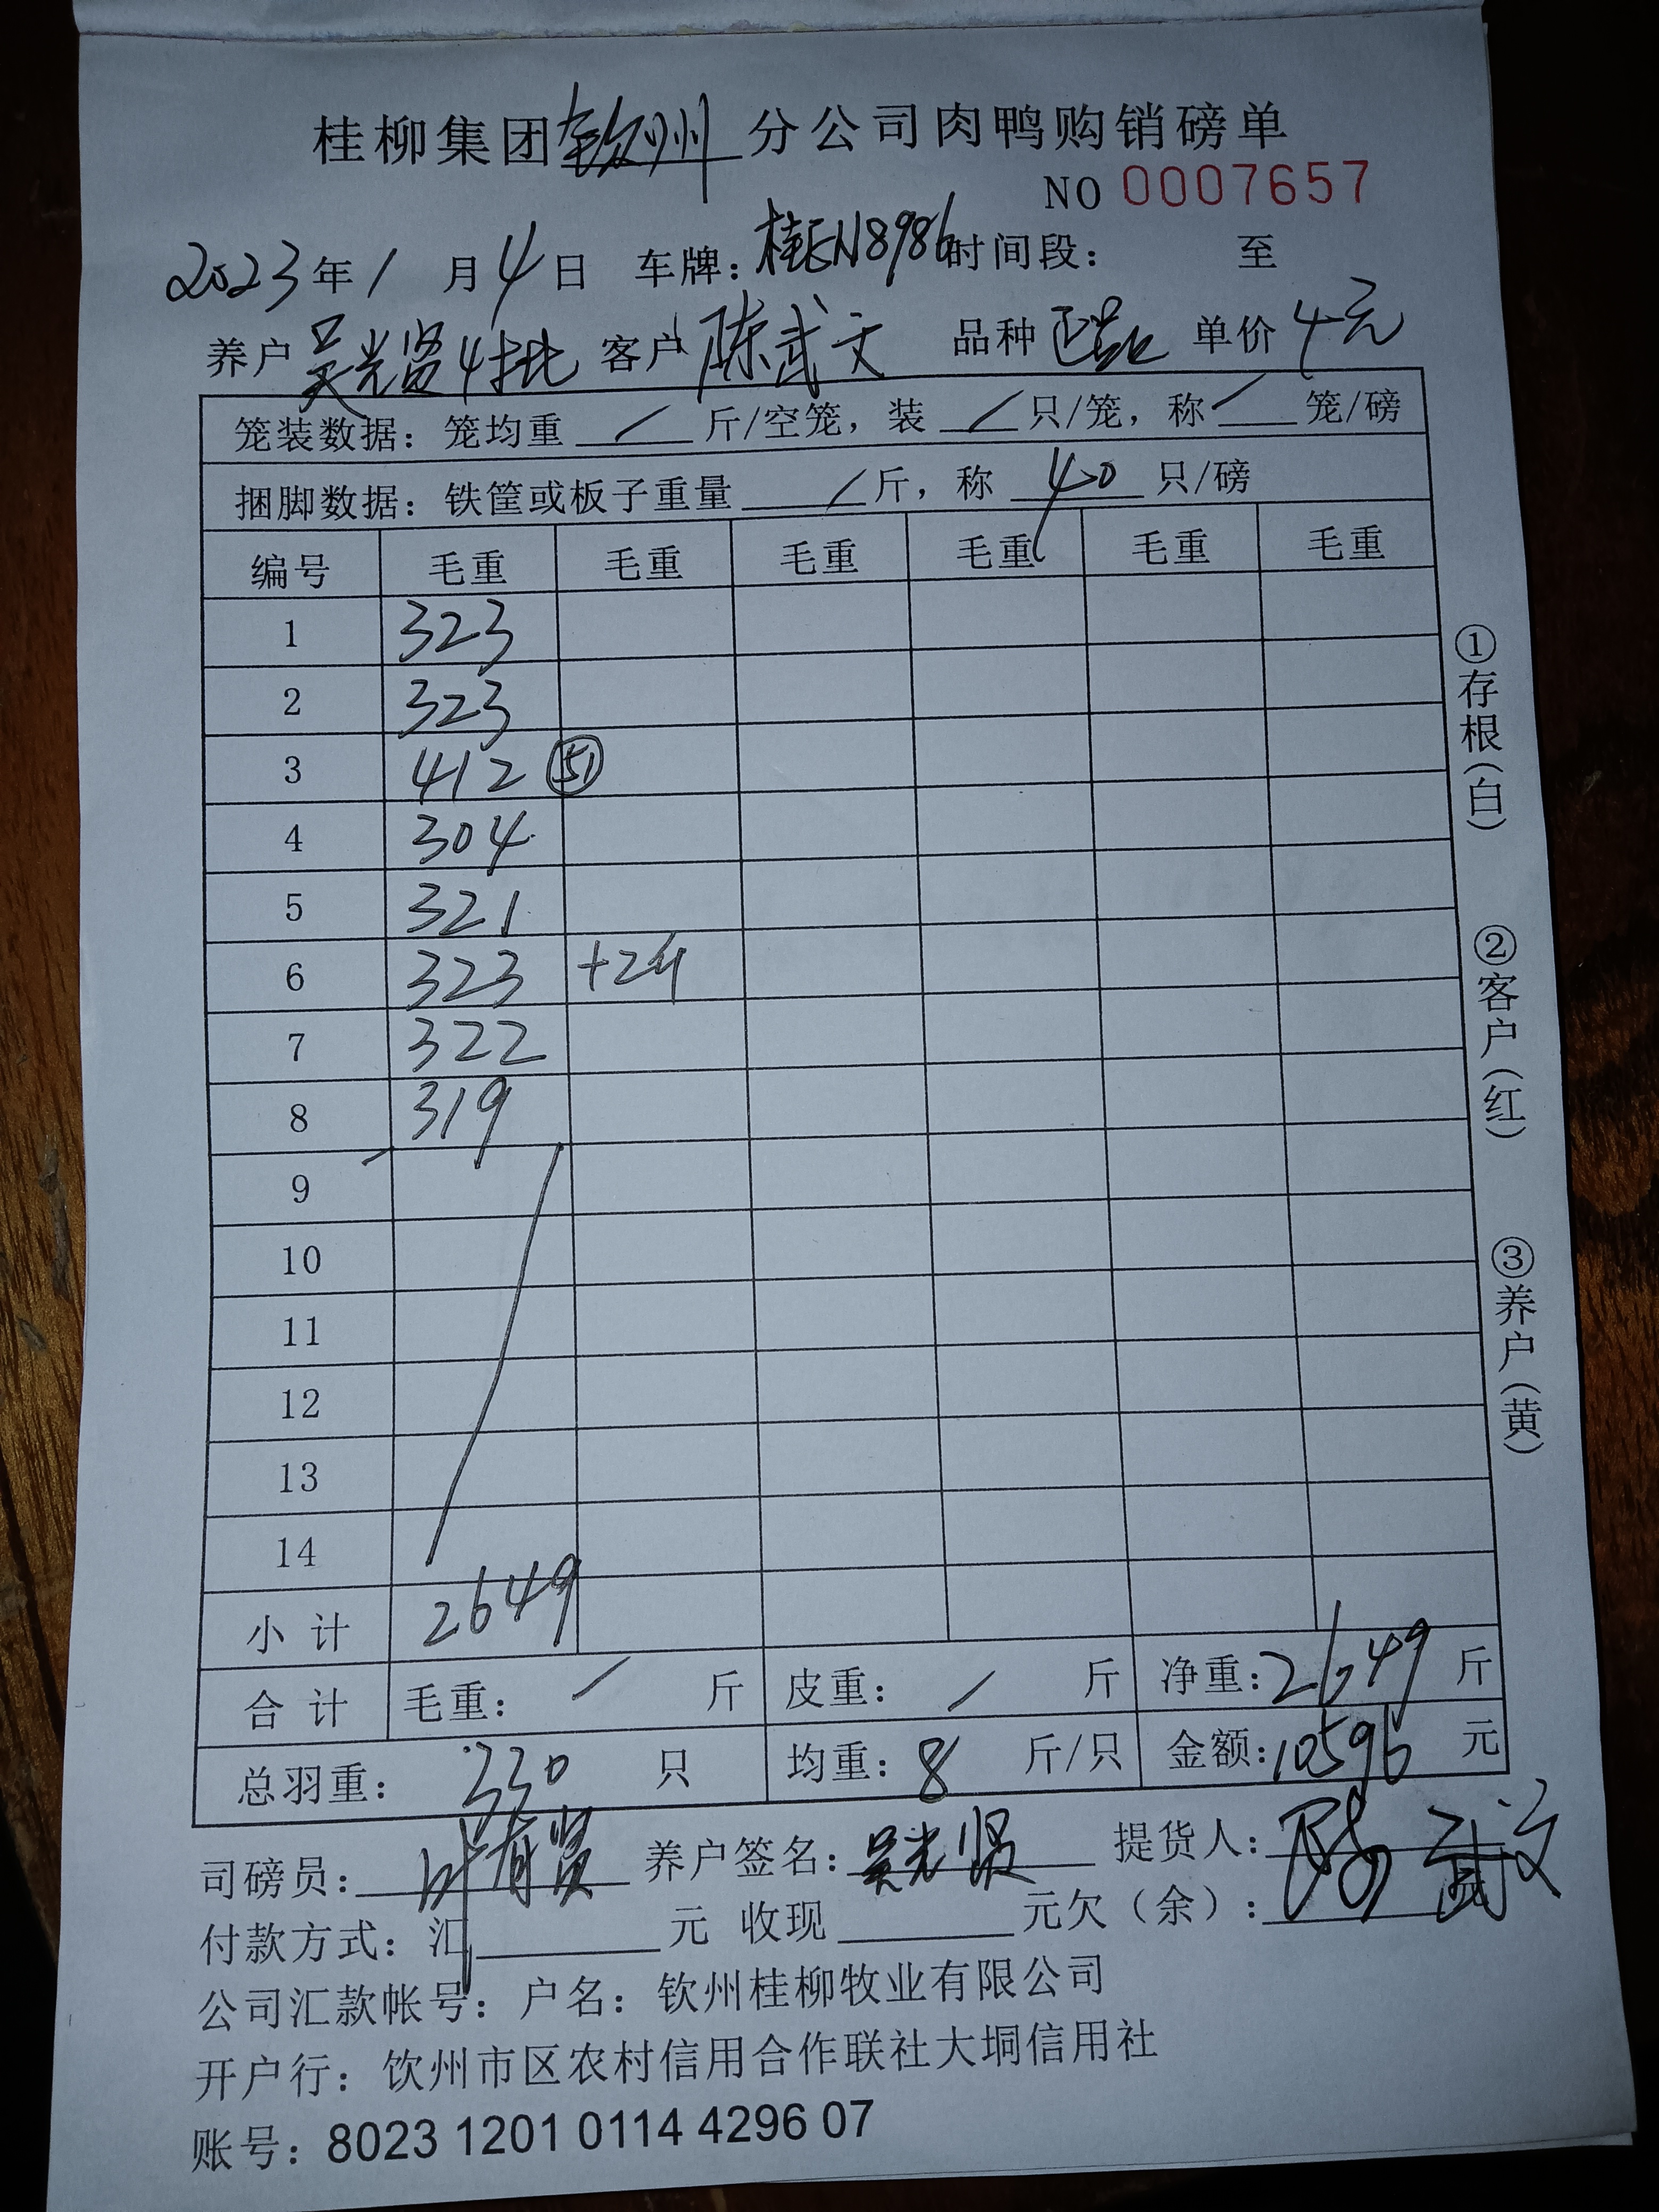 桂柳集团钦州分公司肉鸭购销磅单
NO 0007657
2023年1月4日 车牌：桂EN8986 时间段： 至
养户 吴光贤4批 客户 陈武文 品种 单价 4元
笼装数据：笼均重 / 斤/空笼，装 / 只/笼，称 / 笼/磅
捆脚数据：铁筐或板子重量 / 斤，称 40 只/磅
编号 毛重 毛重 毛重 毛重 毛重 毛重
1 323
2 323
3 412 51
4 304
5 321
6 323 +24
7 322
8 319
9
10
11
12
13
14
小计 2649
合计 毛重： / 斤 皮重： / 斤 净重：2649 斤
总羽重： 330 只 均重：8 斤/只 金额：10596 元
司磅员：叶有贤 养户签名：吴光贤 提货人：陈武文
付款方式：汇 元 收现 元欠（余）：
公司汇款帐号：户名：钦州桂柳牧业有限公司
开户行：钦州市区农村信用合作联社大垌信用社
账号：8023 1201 0114 4296 07
①存根（白）
②客户（红）
③养户（黄）